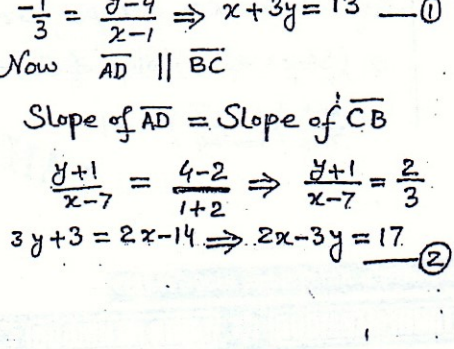 -1/3 = y-4/x-1 ⇒ x+3y = 13 —①
Now A̅D̅ || B̅C̅
Slope of A̅D̅ = Slope of C̅B̅
y+1/x-7 = 4-2/1+2 ⇒ y+1/x-7 = 2/3
3y+3 = 2x-14 ⇒ 2x-3y = 17 —②